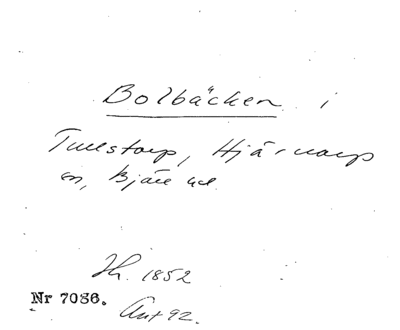 Bolbäcken i
Tullstorp, Hjärnarp
sn, Bjäre hd.
Jh. 1852
Nr 7086.
Ant 92.